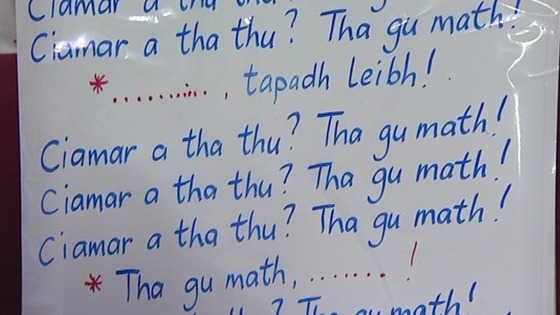 Ciamar a tha thu?
Ciamar a tha thu? Tha gu math!
* .........., tapadh leibh!
Ciamar a tha thu? Tha gu math!
Ciamar a tha thu? Tha gu math!
Ciamar a tha thu? Tha gu math!
* Tha gu math, ....... !
thu? Tha gu math!